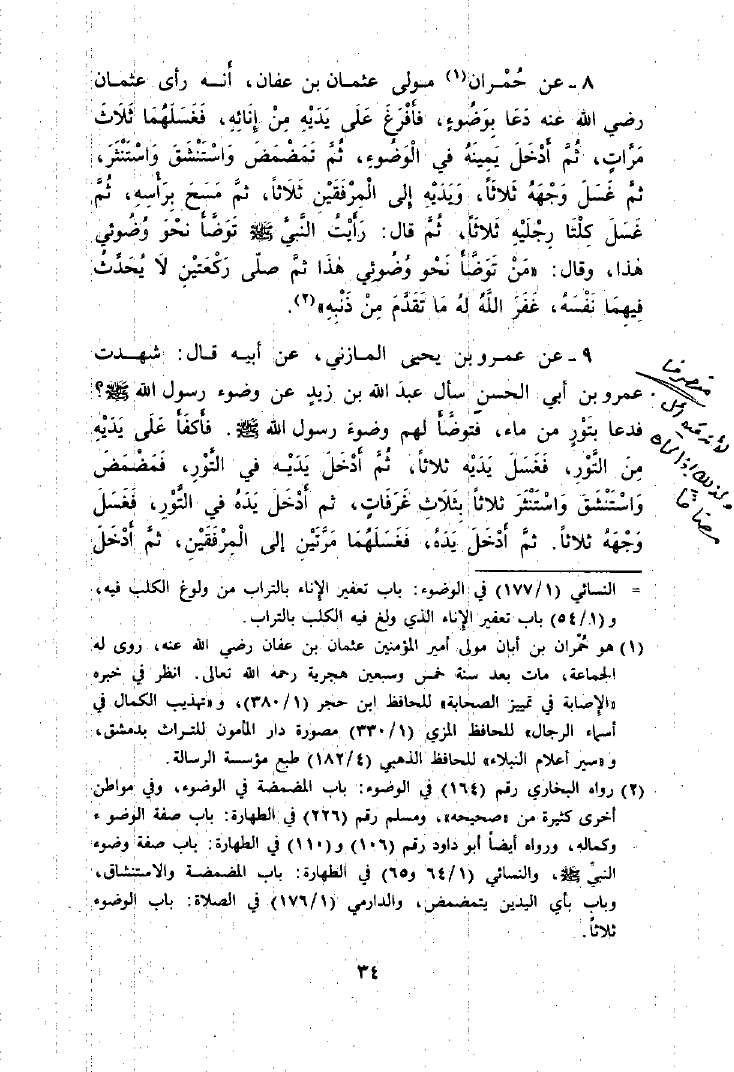 ٨ - عن حُمْران(١) مولى عثمان بن عفان، أنه رأى عثمان
رضي الله عنه دَعَا بِوَضُوءٍ، فأَفْرَغَ عَلَى يَدَيْهِ مِنْ إِنَائِهِ، فَغَسَلَهُمَا ثَلَاثَ
مَرَّاتٍ، ثُمَّ أَدْخَلَ يَمِينَهُ في الْوَضُوءِ، ثُمَّ تَمَضْمَضَ وَاسْتَنْشَقَ وَاسْتَنْثَرَ،
ثمَّ غَسَلَ وَجْهَهُ ثَلاثاً، وَيَدَيْهِ إلى الْمِرْفَقَيْنِ ثَلَاثاً، ثمَّ مَسَحَ بِرَأْسِهِ، ثُمَّ
غَسَلَ كِلْتَا رِجْلَيْهِ ثَلاثَاً، ثُمَّ قال: رَأَيْتُ النَّبِيَّ ﷺ تَوَضَّأَ نَحْوَ وُضُوئي
هٰذا، وقال: «مَنْ تَوَضَّأَ نَحْوَ وُضُوئِي هٰذَا ثمَّ صلّى رَكْعَتَيْنِ لَا يُحَدِّثُ
فِيهِمَا نَفْسَهُ، غَفَرَ اللَّهُ لَهُ مَا تَقَدَّمَ مِنْ ذَنْبِهِ»(٢).
٩ - عن عمرو بن يحيى المازني، عن أبيه قال: شهدت
عمرو بن أبي الحسن سأل عبدَ الله بن زيدٍ عن وضوء رسول الله ﷺ؟
فدعا بِتَوْرٍ من ماء، فَتوضَّأَ لهم وضوءَ رسول الله ﷺ. فَأَكْفَأَ عَلَى يَدَيْهِ
مِنَ التَّوْرِ، فَغَسَلَ يَدَيْهِ ثلاثاً، ثُمَّ أَدْخَلَ يَدَيْهِ في التَّوْرِ، فَمَضْمَضَ
وَاسْتَنْشَقَ وَاسْتَنْثَرَ ثلاثاً بِثَلاثِ غَرَفَاتٍ، ثم أَدْخَلَ يَدَهُ في التَّوْرِ، فَغَسَلَ
وَجْهَهُ ثلاثاً. ثمَّ أَدْخَلَ يَدَهُ، فَغَسَلَهُمَا مَرَّتَيْنِ إلى الْمِرْفَقَيْنِ، ثمَّ أَدْخَلَ
= النسائي (١/١٧٧) في الوضوء: باب تعفير الإناء بالتراب من ولوغ الكلب فيه،
و (١/٥٤) باب تعفير الإناء الذي ولغ فيه الكلب بالتراب.
(١) هو حُمْران بن أبان مولى أمير المؤمنين عثمان بن عفان رضي الله عنه، روى له
الجماعة، مات بعد سنة خمس وسبعين هجرية رحمه الله تعالى. انظر في خبره
«الإصابة في تمييز الصحابة» للحافظ ابن حجر (١/٣٨٠)، و «تهذيب الكمال في
أسماء الرجال» للحافظ المزي (١/٣٣٠) مصورة دار المأمون للتراث بدمشق،
و «سير أعلام النبلاء» للحافظ الذهبي (٤/١٨٢) طبع مؤسسة الرسالة.
(٢) رواه البخاري رقم (١٦٤) في الوضوء: باب المضمضة في الوضوء، وفي مواطن
أخرى كثيرة من «صحيحه»، ومسلم رقم (٢٢٦) في الطهارة: باب صفة الوضوء
وكماله، ورواه أيضاً أبو داود رقم (١٠٦) و (١١٠) في الطهارة: باب صفة وضوء
النبيّ ﷺ، والنسائي (١/٦٤ و٦٥) في الطهارة: باب المضمضة والاستنشاق،
وباب بأي اليدين يتمضمض، والدارمي (١/١٧٦) في الصلاة: باب الوضوء
ثلاثاً.
٣٤